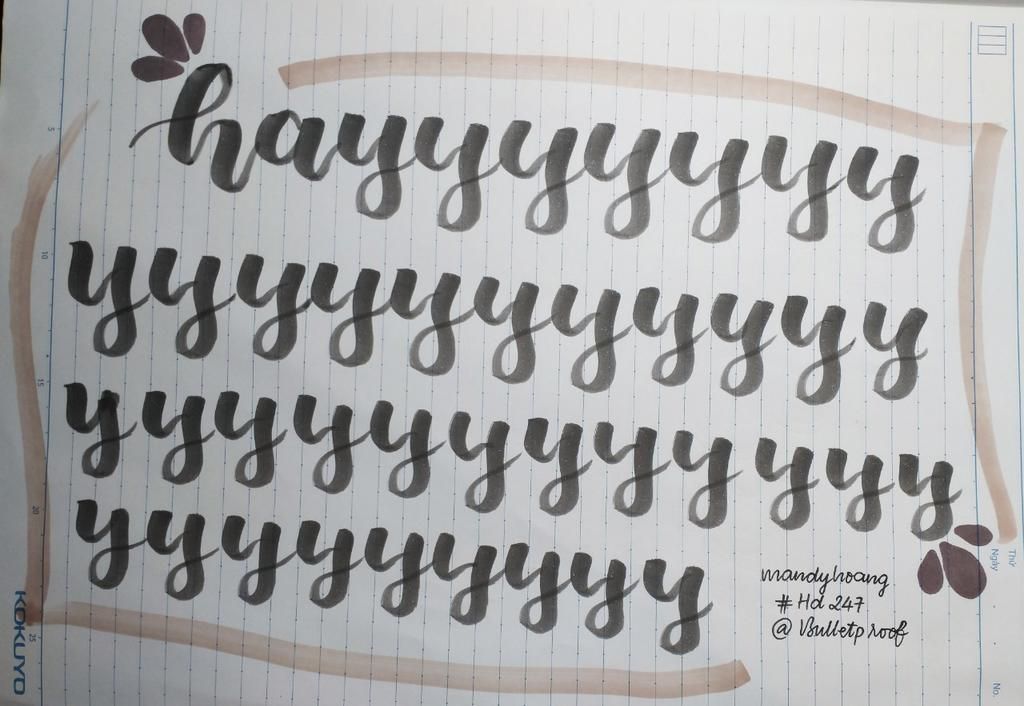 hayyyyyyy
yyyyyyyyyyy
yyyyyyyyyyyy
yyyyyyyyy
mandyhoang
# Hd 247
@ Bulletproof
Thứ
Ngày
No.
KOKUYO
5
10
15
20
25